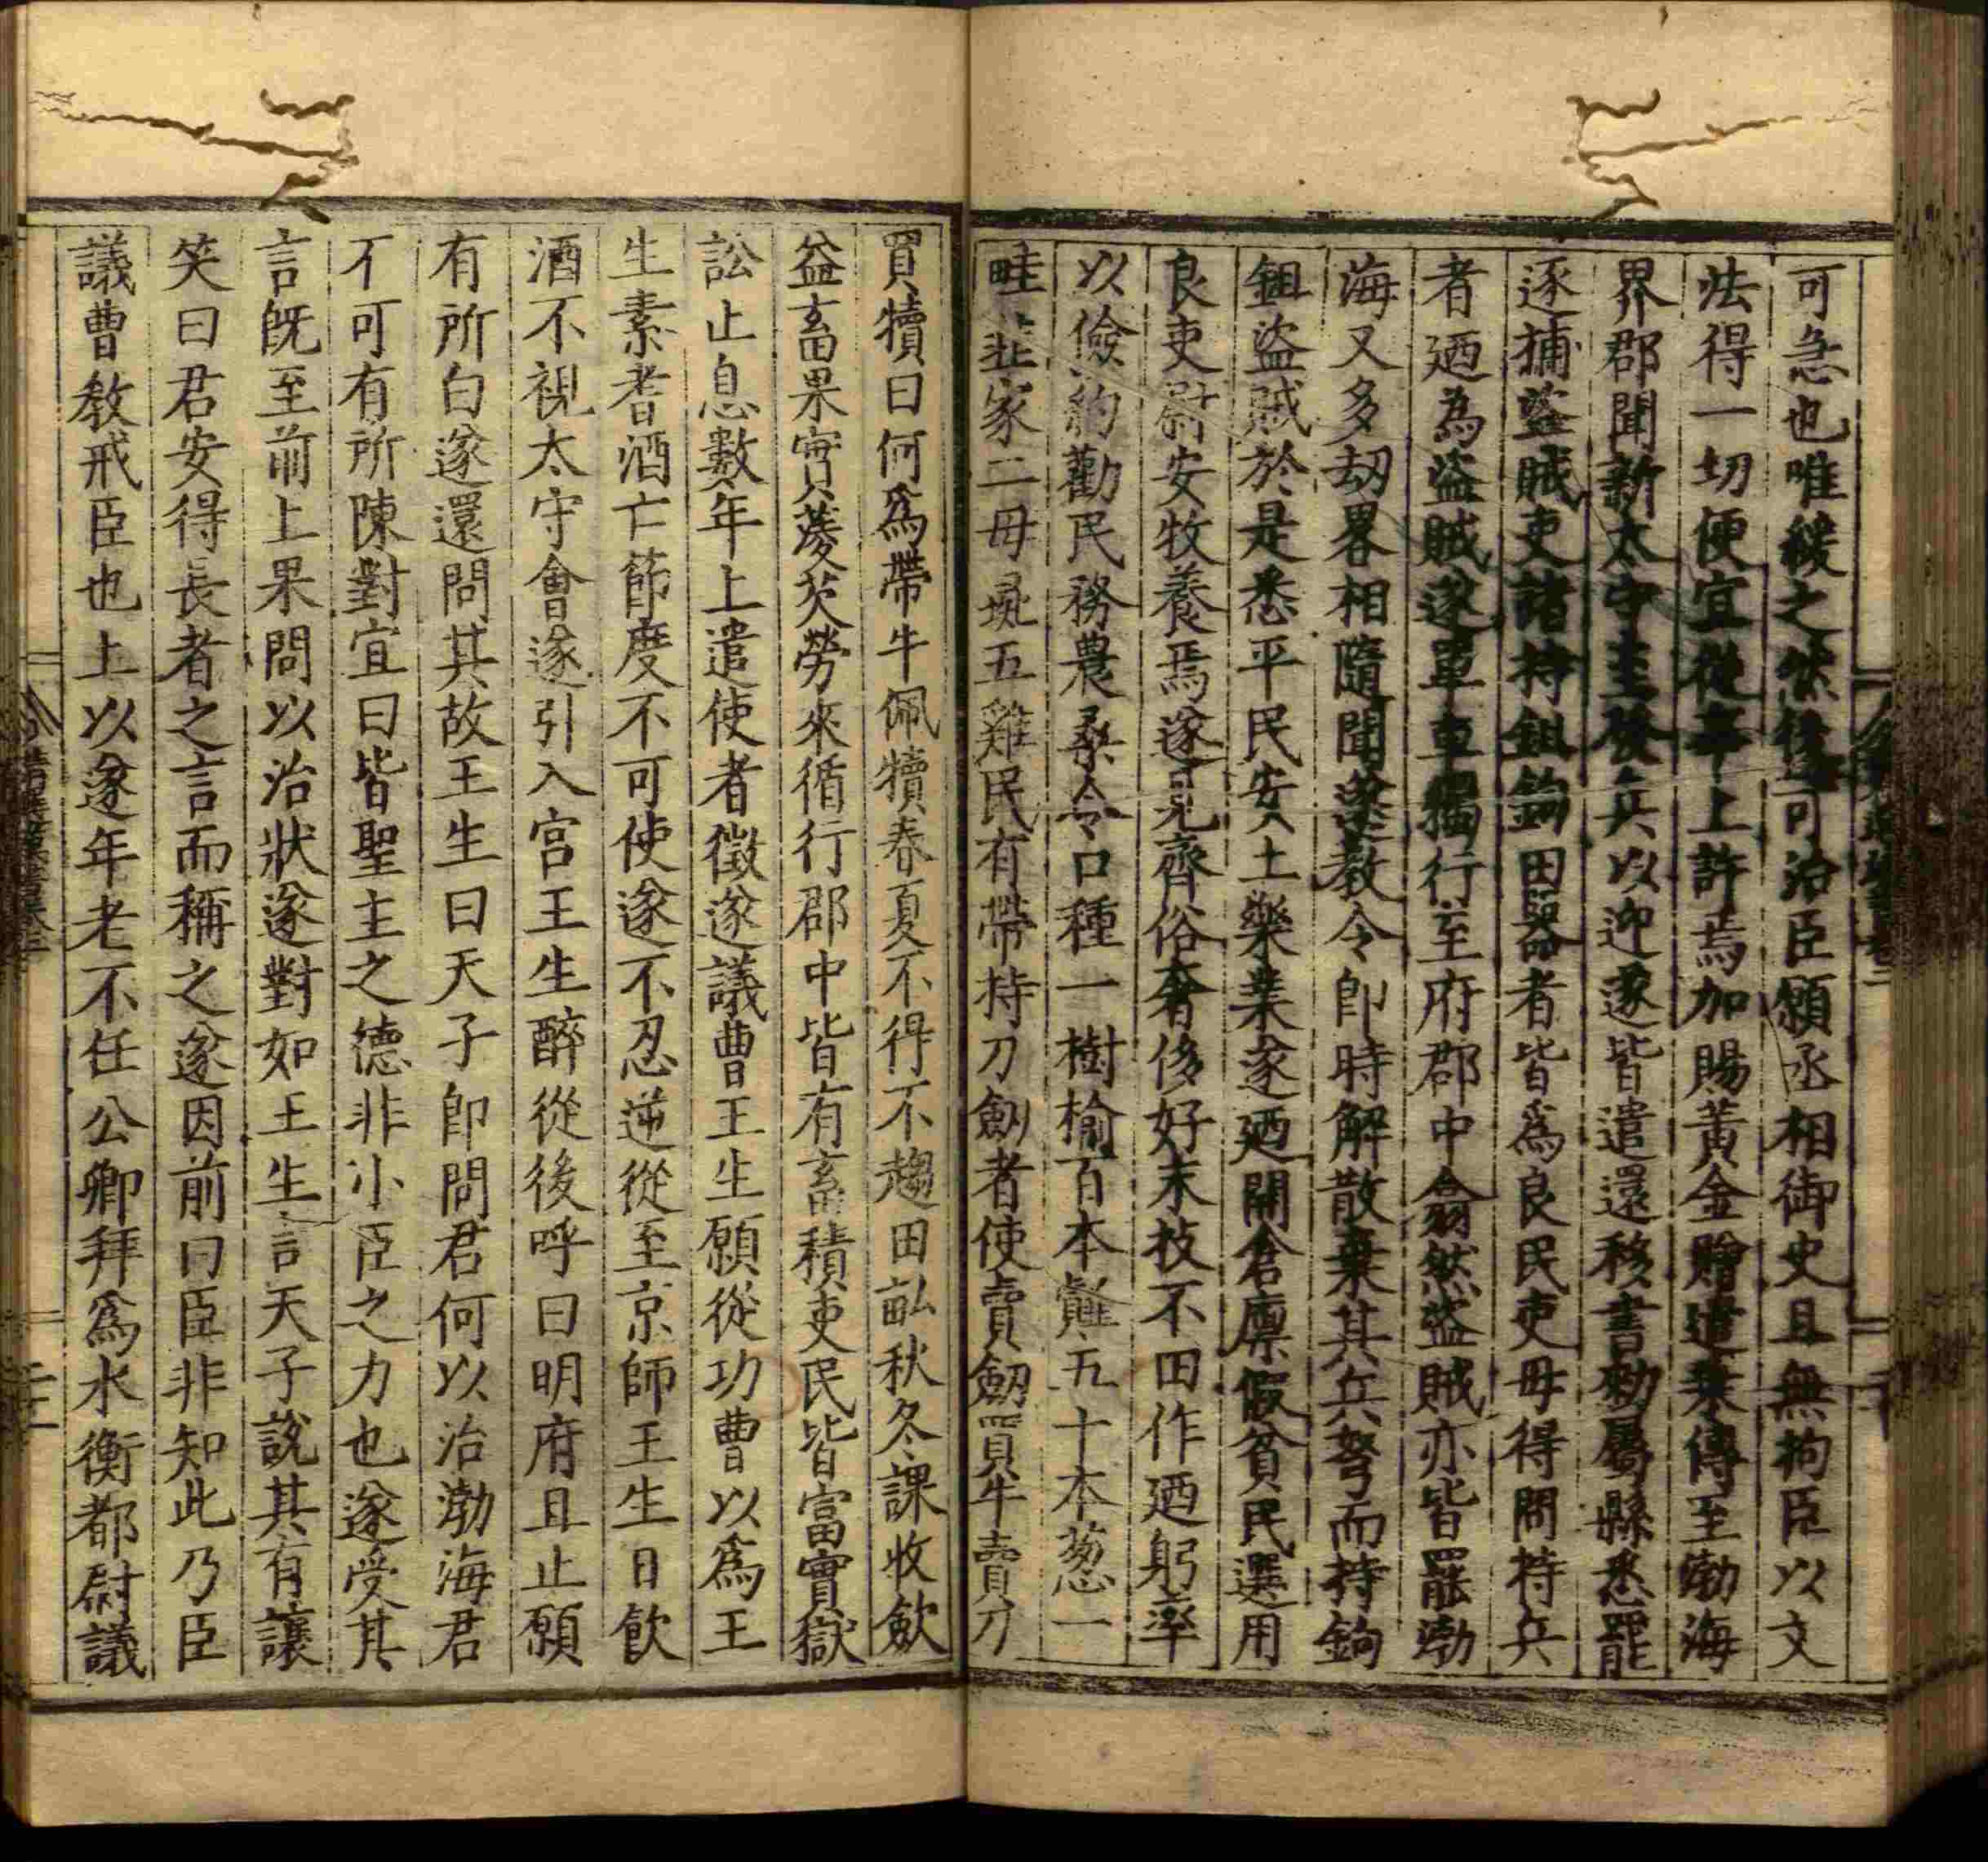 可急也唯緩之然後可治臣願丞相御史且無拘臣以文
法得一切便宜從事上許焉加賜黃金贈遣乗傳至渤海
界郡聞新太守至發兵以迎遂皆遣還移書勑屬縣悉罷
逐捕盜賊吏諸持鉏鉤田器者皆爲良民吏毋得問持兵
者廼為盜賊遂單車獨行至府郡中翕然盜賊亦皆罷渤
海又多刼畧相隨聞遂教令卽時解散棄其兵弩而持鉤
鉏盜賊於是悉平民安土樂業遂廼開倉廪假貧民選用
良吏尉安牧養焉遂見齊俗奢侈好末技不田作廼躬率
以儉約勸民務農桑令口種一樹榆百本䪥五十本葱一
畦韭家二母彘五雞民有帶持刀劍者使賣劒買牛賣刀
買犢曰何爲帶牛佩犢春夏不得不趨田畝秋冬課收斂
益畜果實蔆芡勞來循行郡中皆有畜積吏民皆富實獄
訟止息數年上遣使者徵遂議曹王生願從功曹以爲王
生素耆酒亡節度不可使遂不忍逆從至京師王生日飲
酒不視太守會遂引入宮王生醉從後呼曰明府且止願
有所白遂還問其故王生曰天子卽問君何以治渤海君
不可有所陳對宜曰皆聖主之德非小臣之力也遂受其
言旣至前上果問以治狀遂對如王生言天子說其有讓
笑曰君安得長者之言而稱之遂因前曰臣非知此乃臣
議曹教戒臣也上以遂年老不任公卿拜爲水衡都尉議